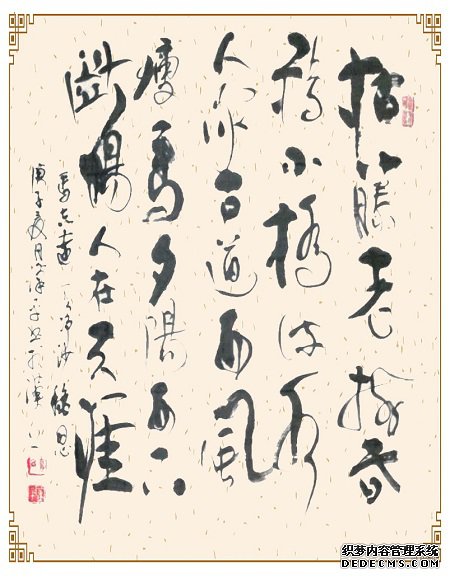 枯藤老樹昏
鴉小橋流水
人家古道西風
瘦馬夕陽西下
斷腸人在天涯
馬致遠天淨沙秋思
庚子夏月
织梦内容管理系统
DEDECMS.COM